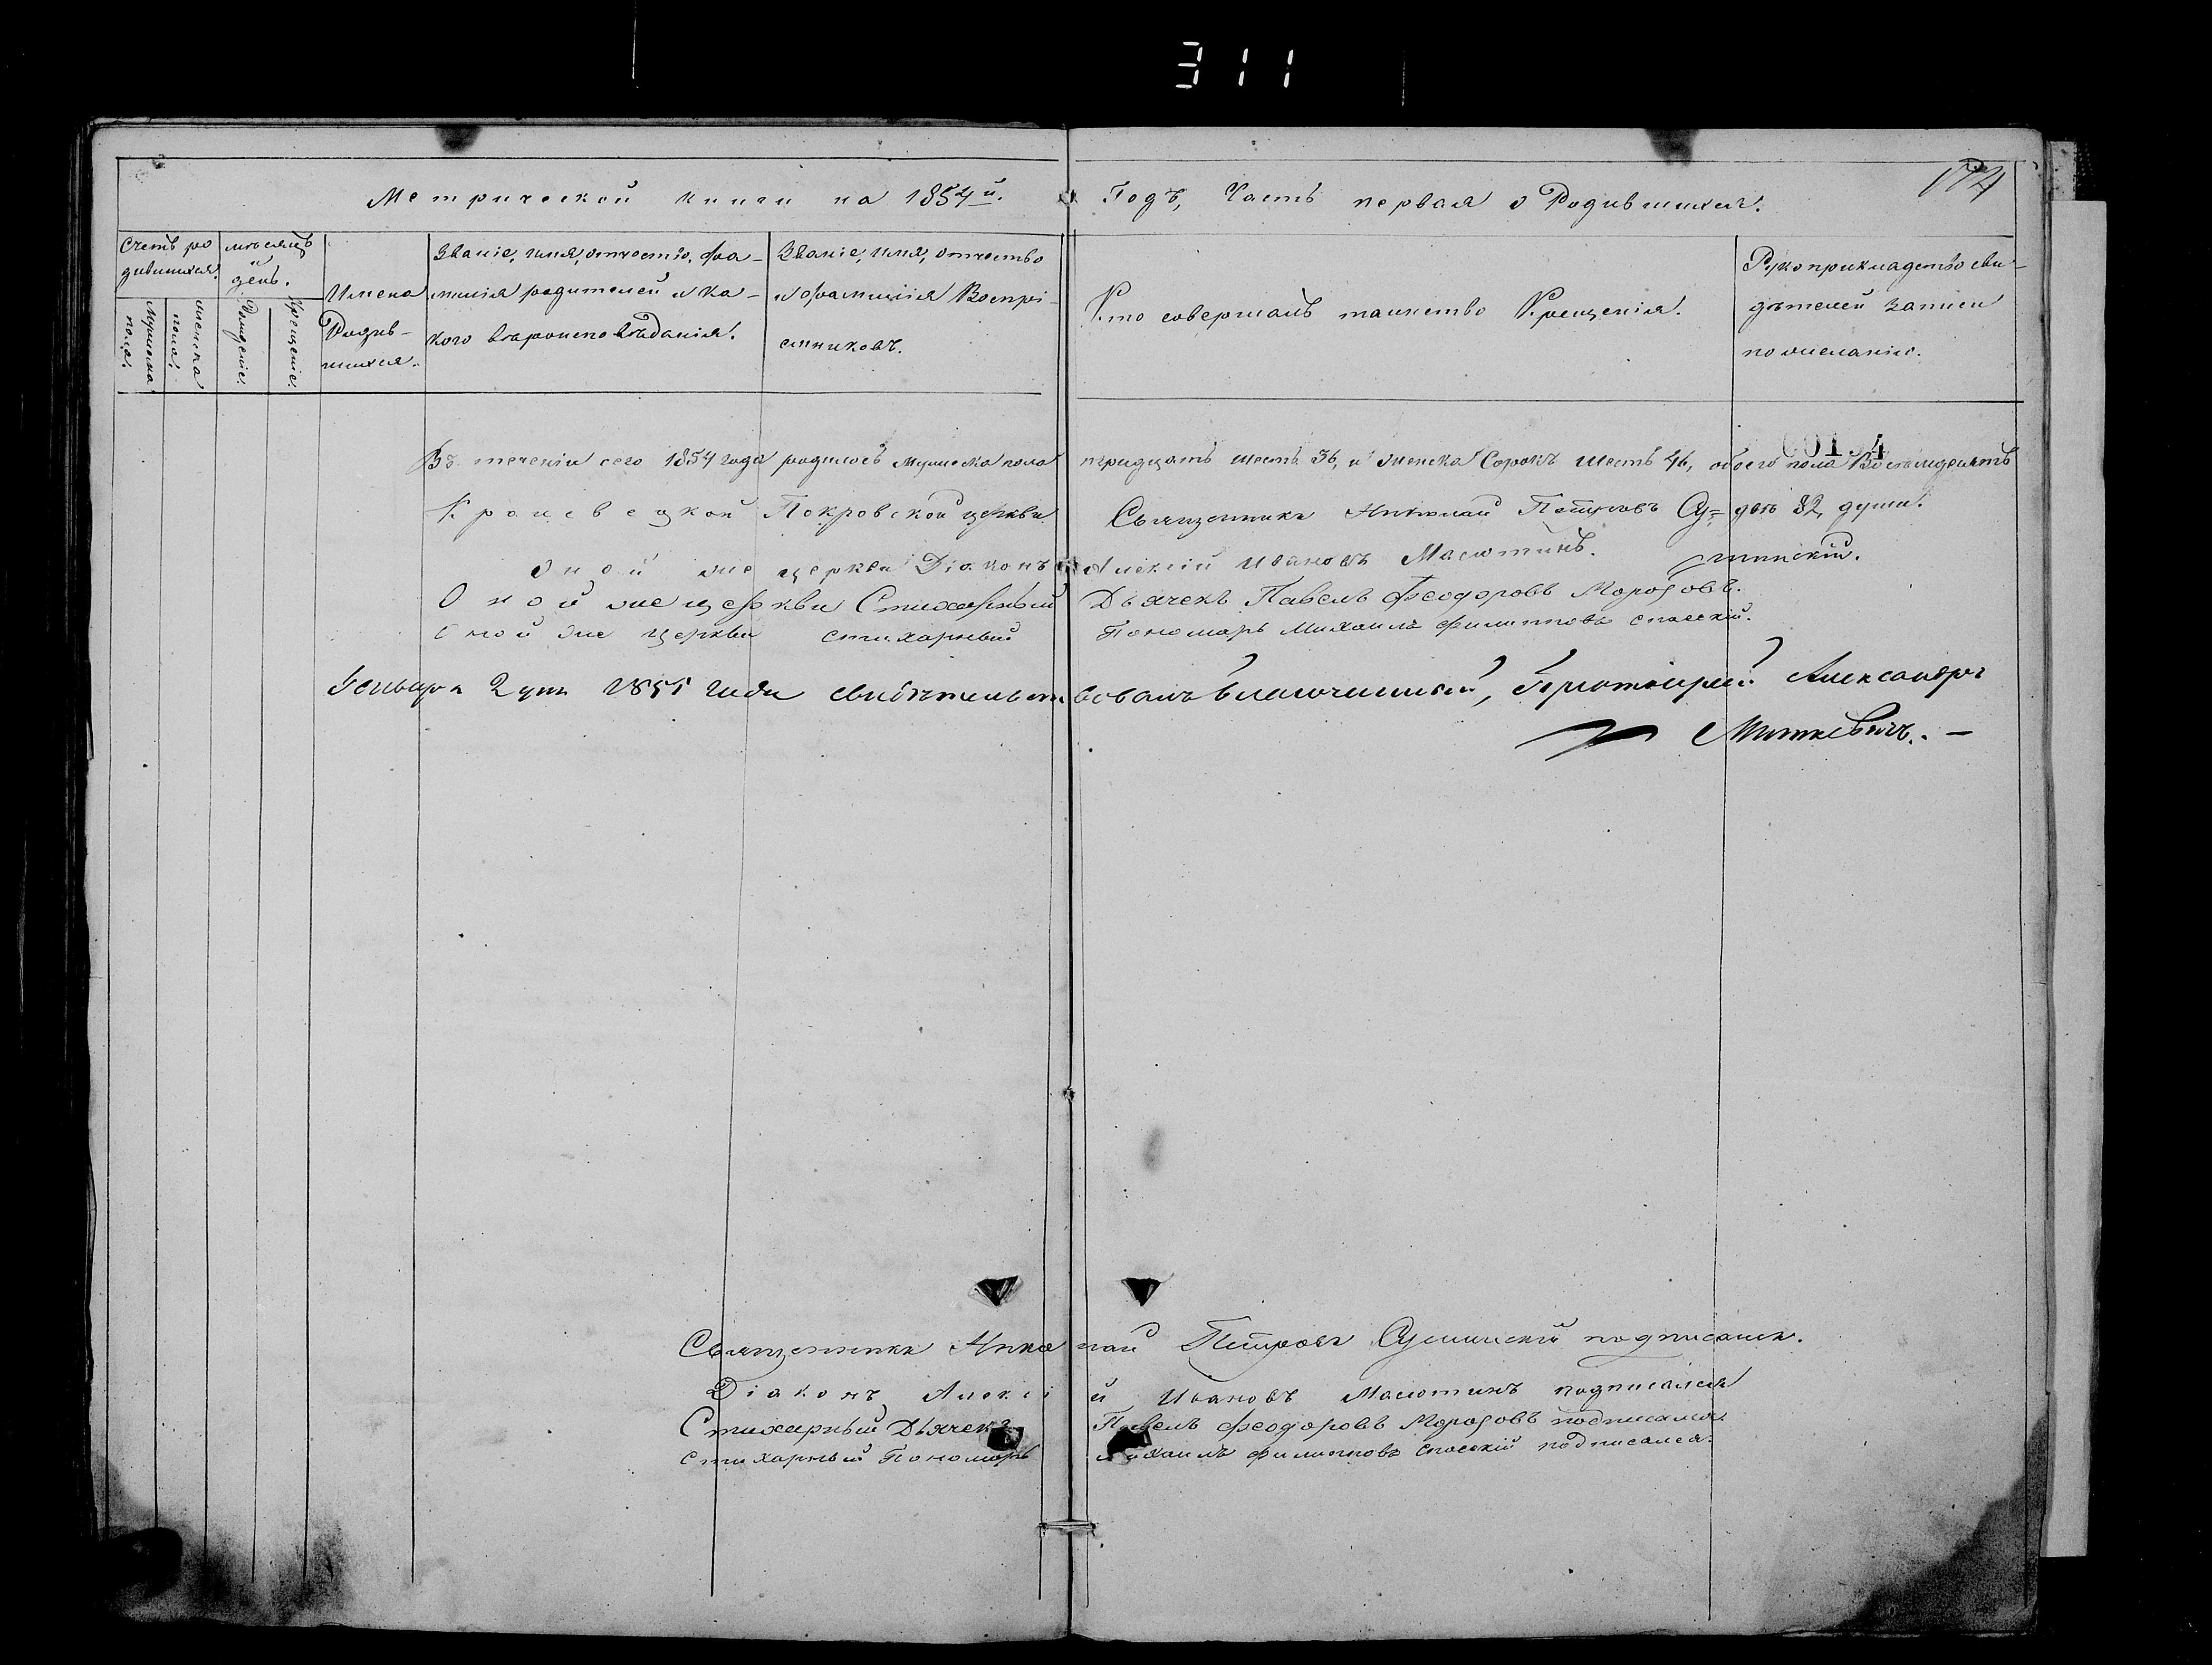 311
184
Метрической книги на 1854й. Годъ, Часть первая о Родившихся.
Счетъ ро
дившихся.
Мужеска
пола.
женска
пола.
мѣсяцъ
и
день.
Рожденіе.
Крещеніе.
Имена
Родив-
шихся.
Званіе, имя, отчество, фа-
милія родителей и ка-
кого вѣроисповѣданія.
Званіе, имя, отчество
и фамилія Воспрі-
емниковъ.
Кто совершалъ таинство Крещенія.
Рукоприкладство сви-
дѣтелей записи
по желанію.
Въ теченіи сего 1854 года родилось Мужеска пола тридцать шесть 36, и женска Сорокъ шесть 46, обоего пола Восемдесятъ
двѣ 82, души.
Покровской церкви Священникъ Николай Петровъ
Оной же церкви Діаконъ Алексій Ивановъ Масютинъ.
Оной же церкви Стихарный Дьячекъ Павелъ Феодоровъ Морозовъ.
Оной же церкви стихарный Пономарь Михаилъ Филипповъ Спасскій.
Генваря 2 дня 1855 года свидѣтельствовалъ благочинный, Протоіерей Александръ
Миткевичъ. –
Священникъ Николай Петровъ подписался.
Діаконъ Алексій Ивановъ Масютинъ подписался
Стихарный Дьячекъ Павелъ Феодоровъ Морозовъ подписался.
Стихарный Пономарь Михаилъ Филипповъ Спасскій подписался.